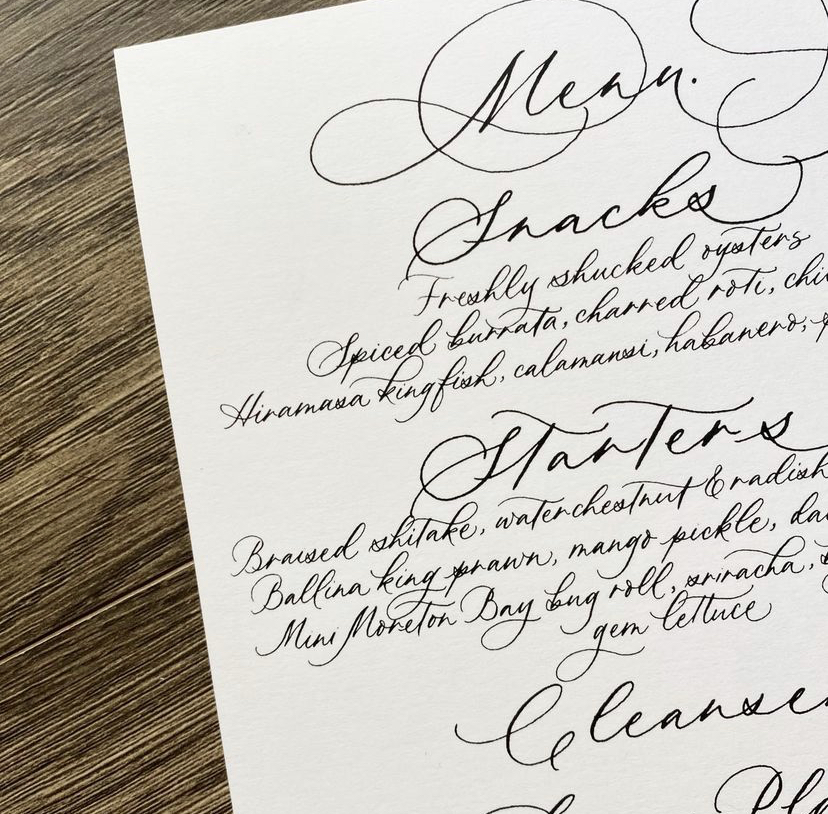 Menu.
Snacks
Freshly shucked oysters
Spiced burrata, charred roti,
Hiramasa kingfish, calamansi, habanero,
Starters
Braised shitake, waterchestnut & radish
Ballina king prawn, mango pickle,
Mini Moreton Bay bug roll, sriracha,
gem lettuce